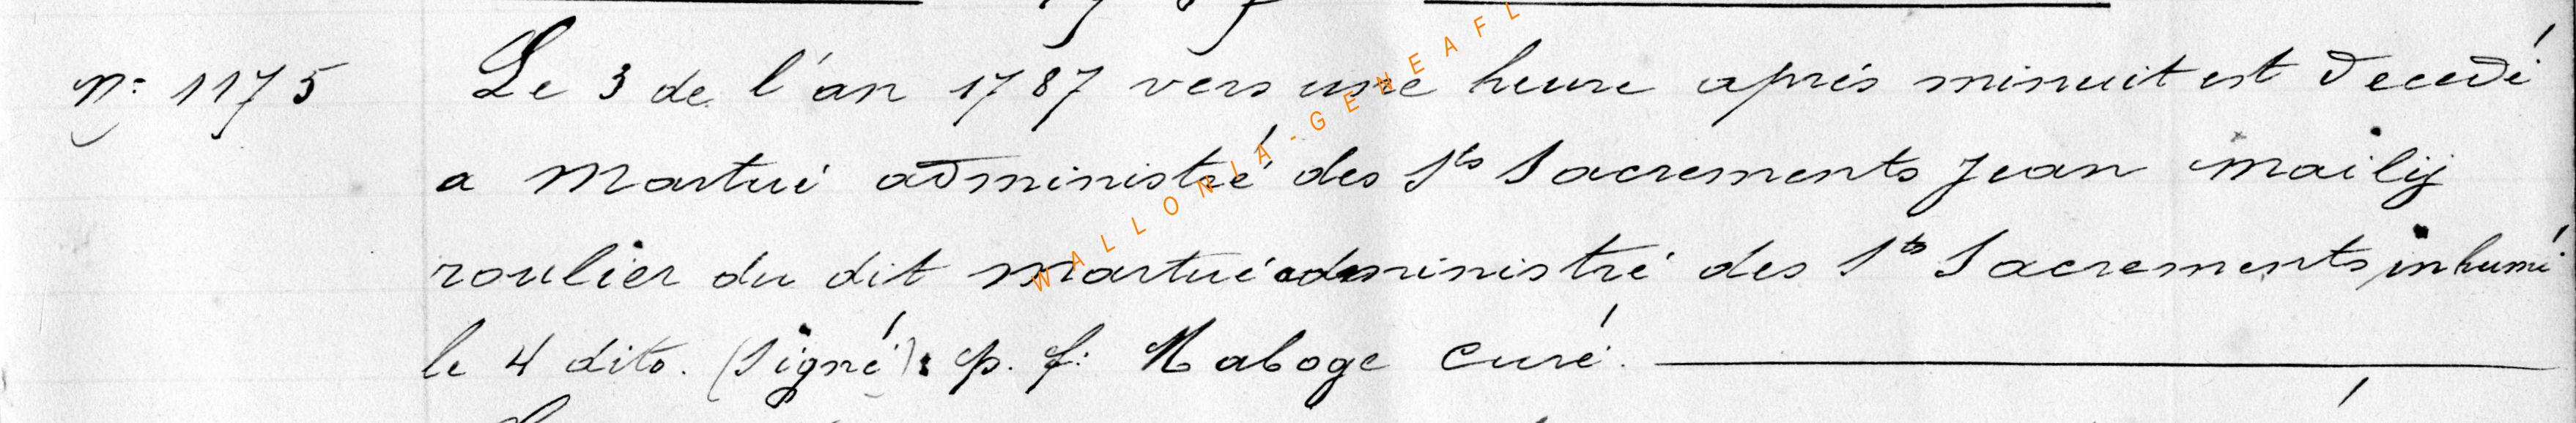 n: 1175 Le 3 de l'an 1787 vers une heure après minuit est decedé
a Martué administré des Sts Sacrements Jean Mailij
roulier du dit Martué administré des Sts Sacrements inhumé
le 4 dito. (Signé): p. f: Naboge Curé.
WALLONIA-GENEAFL